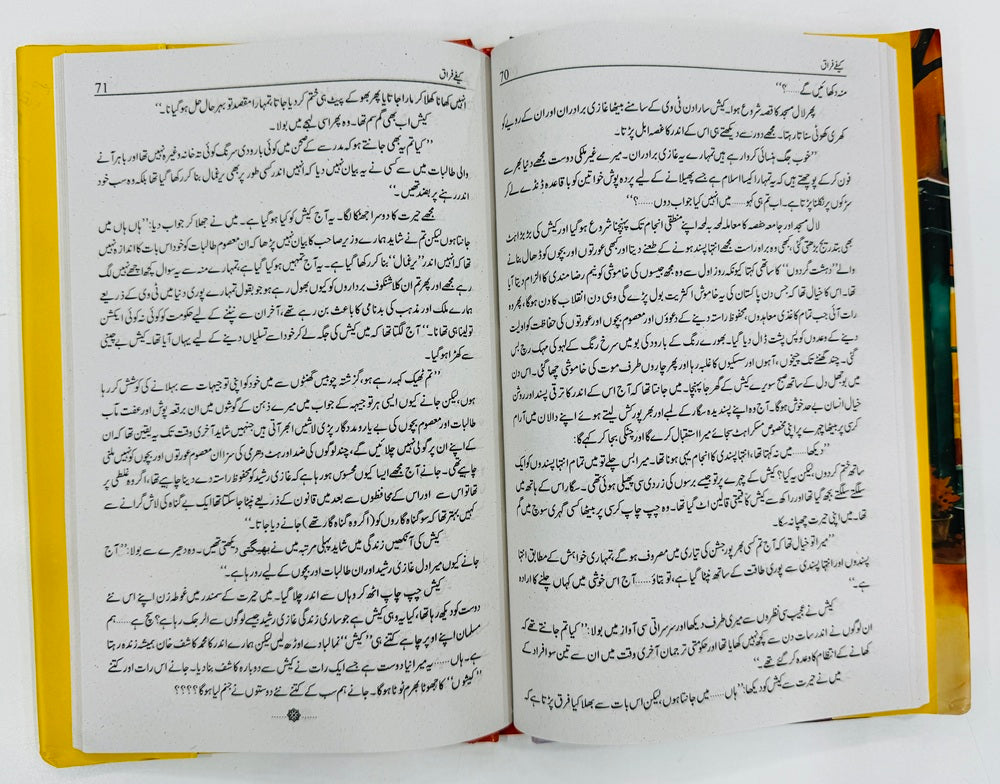 70
کیفے فراق
منہ دکھائیں گے......؟‘‘
پھر لال مسجد کا قصہ شروع ہوا۔ کیش سارا دن ٹی وی کے سامنے بیٹھا غازی برادران اور ان کے رویے کو
کھری کھوٹی سناتا رہتا۔ مجھے دور سے دیکھتے ہی اس کے اندر کا غصہ ابل پڑتا۔
’’خوب جگ ہنسائی کروا رہے ہیں تمہارے یہ غازی برادران۔ میرے غیر ملکی دوست مجھے دنیا بھر سے
فون کر کے پوچھتے ہیں کہ یہ تمہارا کیسا اسلام ہے جسے پھیلانے کے لیے پردہ پوش خواتین کو باقاعدہ ڈنڈے لے کر
سڑکوں پر نکلنا پڑتا ہے۔ اب تم ہی کہو......میں انہیں کیا جواب دوں......؟‘‘
لال مسجد اور جامعہ حفصہ کا معاملہ لمحہ بہ لمحہ اپنے منطقی انجام تک پہنچنا شروع ہو گیا اور کیش کی بڑبڑاہٹ
بھی بتدریج بڑھتی گئی، کبھی وہ براہ راست مجھے انتہا پسند ہونے کے طعنے دیتا اور کبھی عورتوں اور بچوں کو ڈھال بنانے
والے ’’دہشت گردوں‘‘ کا ساتھی کہتا کیونکہ روز اول سے وہ مجھ جیسوں کی خاموشی کو نیم رضا مندی کا الزام دیتا آیا
تھا۔ اس کا خیال تھا کہ جس دن پاکستان کی یہ خاموش اکثریت بول پڑے گی وہی دن انقلاب کا دن ہوگا، پھر وہ
رات آئی جب تمام کاغذی معاہدوں، محفوظ راستہ دینے کے دعوؤں اور معصوم بچوں اور عورتوں کی حفاظت کو اولیت
دینے کے وعدوں کو پس پشت ڈال دیا گیا۔ بھورے رنگ کے بارود کی بو میں سرخ رنگ کے لہو کی مہک رچ بس
گئی۔ چند گھنٹے تک چیخوں، آہوں اور سسکیوں کا غلبہ رہا اور پھر چاروں طرف موت کی خاموشی چھا گئی۔ اس دن
میں بوجھل دل کے ساتھ صبح سویرے کیش کے گھر جا پہنچا۔ میں جانتا تھا کہ آج اس کے اندر کا ترقی پسند اور روشن
خیال انسان بے حد خوش ہوگا۔ آج وہ اپنے پسندیدہ سگار کے لمبے اور بھرپور کش لیتے ہوئے اپنے دالان میں آرام
کرسی پر بیٹھا چہرے پر اپنی مخصوص مسکراہٹ سجائے میرا استقبال کرے گا اور چٹکی بجا کر کہے گا:
’’دیکھا......میں نہ کہتا تھا، انتہا پسندی کا انجام یہی ہونا تھا۔ میرا بس چلے تو میں تمام انتہا پسندوں کو ایک
ساتھ ختم کر دوں، لیکن یہ کیا؟ کیش کے چہرے پر تو جیسے برسوں کی زردی سی پھیلی ہوئی تھی۔ سگار اس کے ہاتھ میں
سلگتے سلگتے بجھ گیا تھا اور راکھ سے کیش کا قیمتی قالین اٹ گیا تھا۔ وہ چپ چاپ کرسی پر بیٹھا کسی گہری سوچ میں گم
تھا۔ میں اپنی حیرت چھپا نہ سکا۔
’’میرا تو خیال تھا کہ آج تم کسی بھرپور جشن کی تیاری میں مصروف ہو گے، تمہاری خواہش کے مطابق انتہا
پسندوں اور انتہا پسندی سے پوری طاقت کے ساتھ نپٹا گیا ہے، تو بتاؤ......آج اس خوشی میں کہاں چلنے کا ارادہ
ہے۔‘‘
کیش نے عجیب سی نظروں سے میری طرف دیکھا اور سرسراتی سی آواز میں بولا: ’’کیا تم جانتے تھے کہ
ان لوگوں نے اندر سات دن سے کچھ نہیں کھایا تھا اور حکومتی ترجمان آخری وقت میں ان سے تین سو افراد کے
کھانے کے انتظام کا وعدہ کر گئے تھے۔‘‘
میں نے حیرت سے کیش کو دیکھا: ’’ہاں......میں جانتا ہوں، لیکن اس بات سے بھلا کیا فرق پڑتا ہے کہ
71
کیفے فراق
انہیں کھانا کھلا کر مارا جاتا یا پھر بھوکے پیٹ ہی ختم کر دیا جاتا، تمہارا مقصد تو بہر حال حل ہو گیا نا۔‘‘
کیش اب بھی گم سم تھا۔ وہ پھر اسی لہجے میں بولا۔
’’کیا تم یہ بھی جانتے ہو کہ مدرسے کے صحن میں کوئی بارودی سرنگ کوئی تہ خانہ وغیرہ نہیں تھا اور باہر آنے
والی طالبات میں سے کسی نے یہ بیان نہیں دیا کہ انہیں اندر کسی طور پر بھی یرغمال بنا کر رکھا گیا تھا بلکہ وہ سب خود
اندر رہنے پر بضد تھیں۔‘‘
مجھے حیرت کا دوسرا جھٹکا لگا۔ یہ آج کیش کو کیا ہو گیا ہے۔ میں نے جھلا کر جواب دیا: ’’ہاں ہاں میں
جانتا ہوں لیکن تم نے شاید ہمارے وزیر صاحب کا بیان نہیں پڑھا کہ ان معصوم طالبات کو خود اس بات کا اندازہ نہیں
تھا کہ انہیں اندر ’’یرغمال‘‘ بنا کر رکھا گیا ہے۔ یہ آج تمہیں ہو کیا گیا ہے، تمہارے منہ سے یہ سوال کچھ اچھے نہیں لگ
رہے مجھے اور پھر تم ان کلاشنکوف برداروں کو کیوں بھول رہے ہو جو بقول تمہارے پوری دنیا میں ٹی وی کے ذریعے
ہمارے ملک اور مذہب کی بدنامی کا باعث بن رہے تھے، آخر ان سے نپٹنے کے لیے حکومت کو کوئی نہ کوئی ایکشن
تو لینا ہی تھا نا۔‘‘ آج لگتا تھا کہ میں کیش کی جگہ لے کر خود اسے تسلیاں دینے کے لیے یہاں آیا تھا۔ کیش بے چینی
سے کھڑا ہو گیا۔
’’تم ٹھیک کہہ رہے ہو، گزشتہ چوبیس گھنٹوں سے میں خود کو اپنی توجیہات سے بہلانے کی کوشش کر رہا
ہوں، لیکن جانے کیوں ایسی ہر توجیہہ کے جواب میں میرے ذہن کے گوشوں میں ان برقعہ پوش اور عفت مآب
طالبات اور معصوم بچوں کی بے یارو مددگار پڑی لاشیں ابھر آتی ہیں جنہیں شاید آخری وقت تک یہ یقین تھا کہ ان
کے اپنے ان پر گولی نہیں چلائیں گے، چند لوگوں کی ضد اور ہٹ دھرمی کی سزا ان معصوم عورتوں اور بچوں کو نہیں ملنی
چاہیے تھی۔ جانے آج مجھے ایسا کیوں محسوس ہو رہا ہے کہ غازی رشید کو محفوظ راستہ دے دینا چاہیے تھا، اگر وہ غلطی پر
تھا تو اس سے اور اس کے محافظوں سے بعد میں قانون کے ذریعے نپٹا جا سکتا تھا ایک بے گناہ کی لاش گرانے سے
کہیں بہتر تھا کہ سو گناہ گاروں کو (اگر وہ گناہ گار تھے) جانے دیا جاتا۔‘‘
کیش کی آنکھیں زندگی میں شاید پہلی مرتبہ میں نے بھیگتی دیکھی تھیں۔ وہ دھیرے سے بولا: ’’آج
جانے کیوں میرا دل غازی رشید اور ان طالبات اور بچوں کے لیے رو رہا ہے۔‘‘
کیش چپ چاپ اٹھ کر وہاں سے اندر چلا گیا۔ میں حیرت کے سمندر میں غوطہ زن اپنے اس نئے
دوست کو دیکھ رہا تھا، کیا یہ وہی کیش ہے جو ساری زندگی غازی رشید جیسے لوگوں سے الرجک رہا ہے؟ سچ ہے......ہم
مسلمان اپنے اوپر چاہے کتنے ہی ’’کیش‘‘ نما لبادے اوڑھ لیں لیکن ہمارے اندر کا محمد کاشف خان ہمیشہ زندہ رہتا
ہے۔ ہاں......یہ میرا نیا دوست ہے جسے ایک رات نے کیش سے دوبارہ کاشف بنا دیا۔ جانے اس رات اور کتنے
’’کیشوں‘‘ کا جھوٹا بھرم ٹوٹا ہوگا۔ جانے ہم سب کے کتنے نئے دوستوں نے جنم لیا ہوگا؟؟؟؟